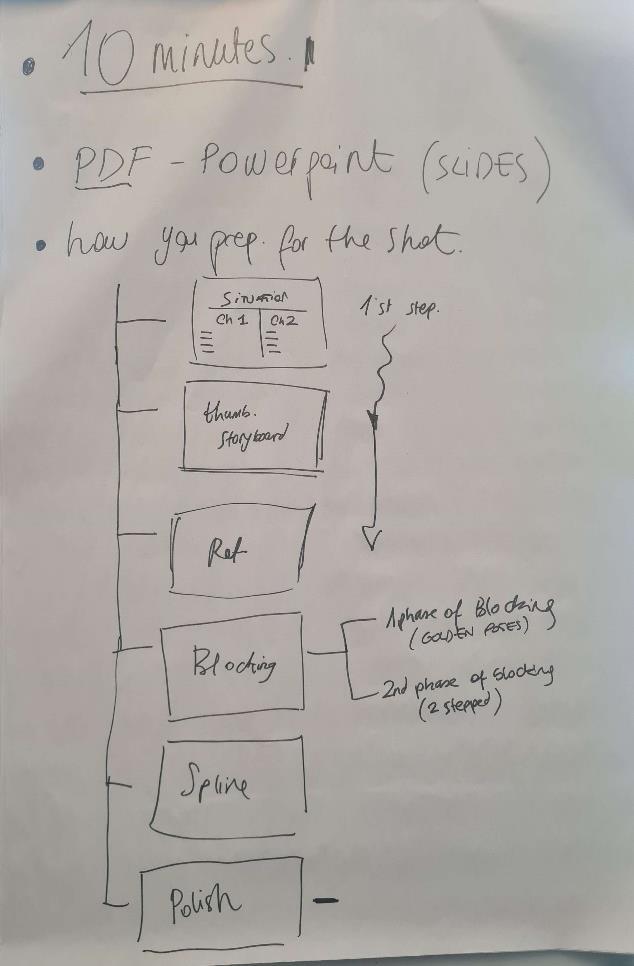 10 minutes.
PDF - Powerpoint (SLIDES)
how you prep. for the shot.
Situation
Ch 1 Ch2
1st step.
thumb.
storyboard
Ref
Blocking
1 phase of Blocking
(GOLDEN POSES)
2nd phase of Blocking
(2 stepped)
Spline
Polish